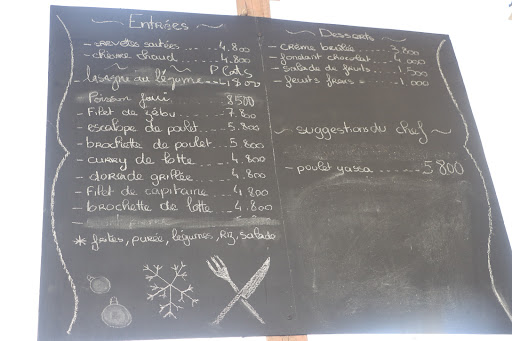 Entrées
- crevettes sautées .... 4.800
- chèvre chaud .... 4.800
P Cats
- lasagne au légume 4.800
Poisson 8500
- Filet de zébu ..... 7.800
- escalope de poulet .. 5.800
- brochette de poulet .. 5.800
- curry de lotte ... 4.800
- dorade grillée ... 4.800
- Filet de capitaine .. 4.800
- brochette de lotte .. 4.800
* frites, purée, légumes, Riz, Salade
Desserts
- crème brûlée .... 3.800
- fondant chocolat .. 4.000
- salade de fruits .. 1.500
- fruits frais = .. 1.000
~ suggestions du chef ~
- poulet yassa ....... 5 800